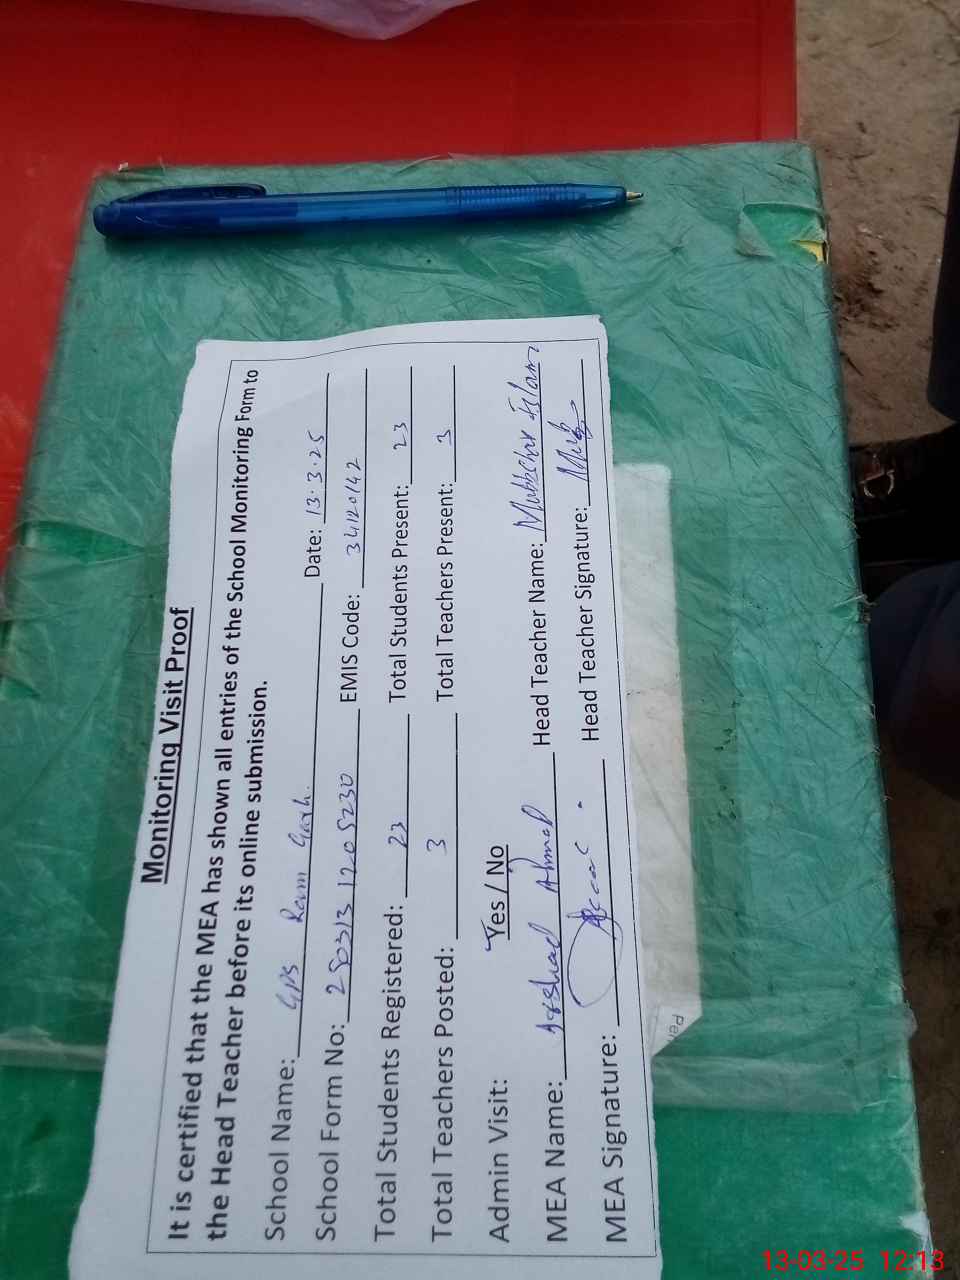 Monitoring Visit Proof
It is certified that the MEA has shown all entries of the School Monitoring Form to
the Head Teacher before its online submission.
School Name: GPS Garh. Date: 13.3.25
School Form No: 250313 1205230 EMIS Code: 34120142
Total Students Registered: 23 Total Students Present: 23
Total Teachers Posted: 3 Total Teachers Present: 3
Admin Visit: Yes / No
MEA Name: Arshad Ahmad Head Teacher Name: Islam
MEA Signature: Head Teacher Signature:
Per
13-03-25 12:13